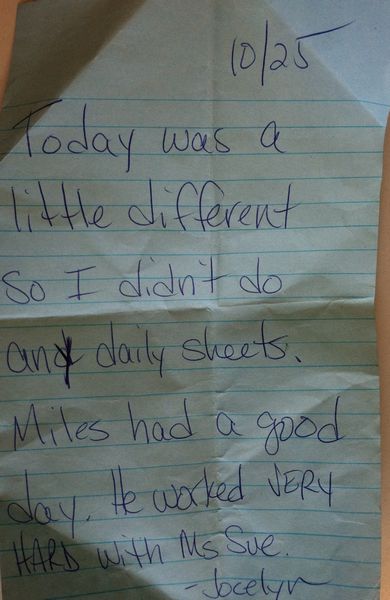 10/25
Today was a
little different
so I didn't do
any daily sheets.
Miles had a good
day. He worked VERY
HARD with Ms Sue.
-Jocelyn